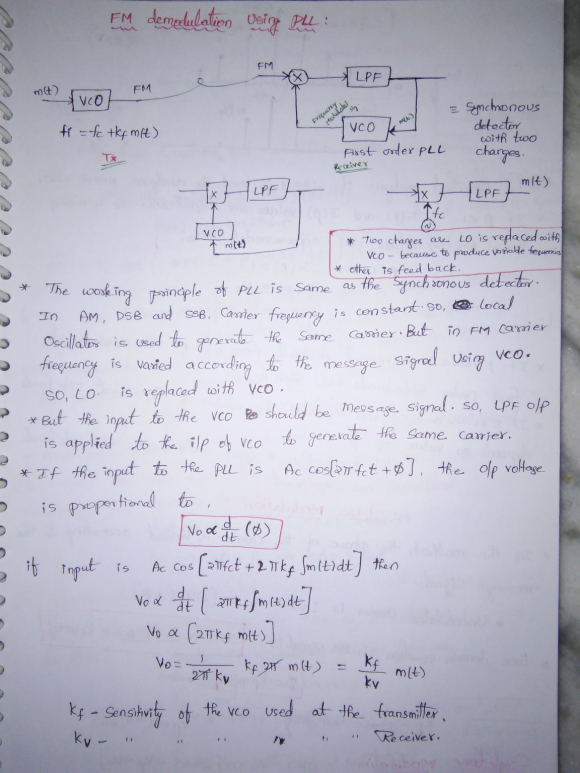 FM demodulation Using PLL :
FM
m(t) VCO FM X LPF
Frequency modulated m(t)
VCO
fi = fc + kf m(t)
Tx
First order PLL
Receiver
= Synchronous
detector
with two
charges.
X LPF
VCO
m(t)
X LPF m(t)
fc
* Two charges are LO is replaced with
VCO - because to produce variable
* other is feed back.
* The working principle of PLL is same as the synchronous detector.
In AM, DSB and SSB, Carrier frequency is constant. So, Local
Oscillator is used to generate the same carrier. But in FM carrier
frequency is varied according to the message signal using VCO.
SO, LO is replaced with VCO.
* But the input to the VCO should be message signal. So, LPF o/p
is applied to the i/p of VCO to generate the same carrier.
* If the input to the PLL is Ac cos[2πfct + ϕ], the o/p voltage
is proportional to,
Vo ∝ d/dt (ϕ)
if input is Ac cos [2πfct + 2πkf ∫m(t)dt] then
Vo ∝ d/dt [2πkf ∫m(t)dt]
Vo ∝ [2πkf m(t)]
Vo = 1/2πkv kf 2π m(t) = kf/kv m(t)
kf - Sensitivity of the VCO used at the transmitter.
kv - " " " " " " Receiver.